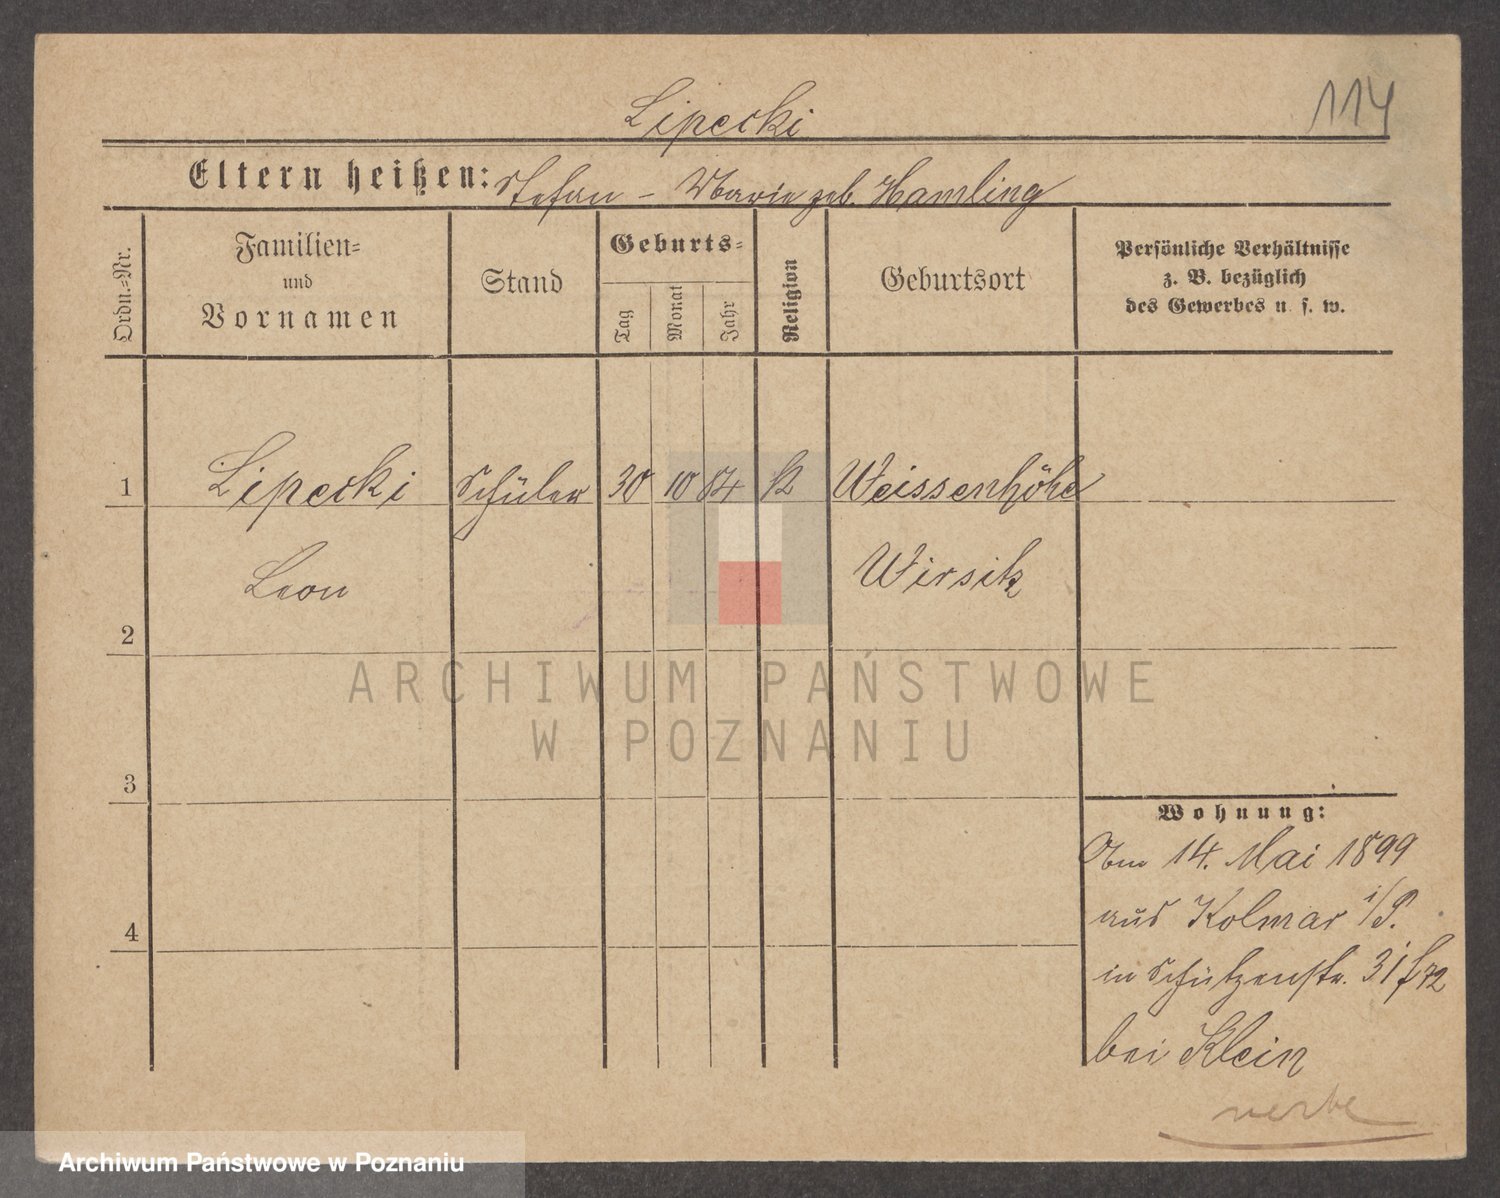 114
Lipecki
Eltern heißen: Stefan – Marie geb. Hamling
Ordn.=Nr.
Familien=
und
Vornamen
Stand
Geburts=
Tag
Monat
Jahr
Religion
Geburtsort
Persönliche Verhältnisse
z. B. bezüglich
des Gewerbes u. s. w.
1 Lipecki Schüler 30 10 84 k Weissenhöhe
Leon Wirsitz
2
ARCHIWUM PAŃSTWOWE
W POZNANIU
3
Wohnung:
14. Mai 1899
4
aus Kolmar i/P.
in Schützenstr. 31
bei Klein
Archiwum Państwowe w Poznaniu